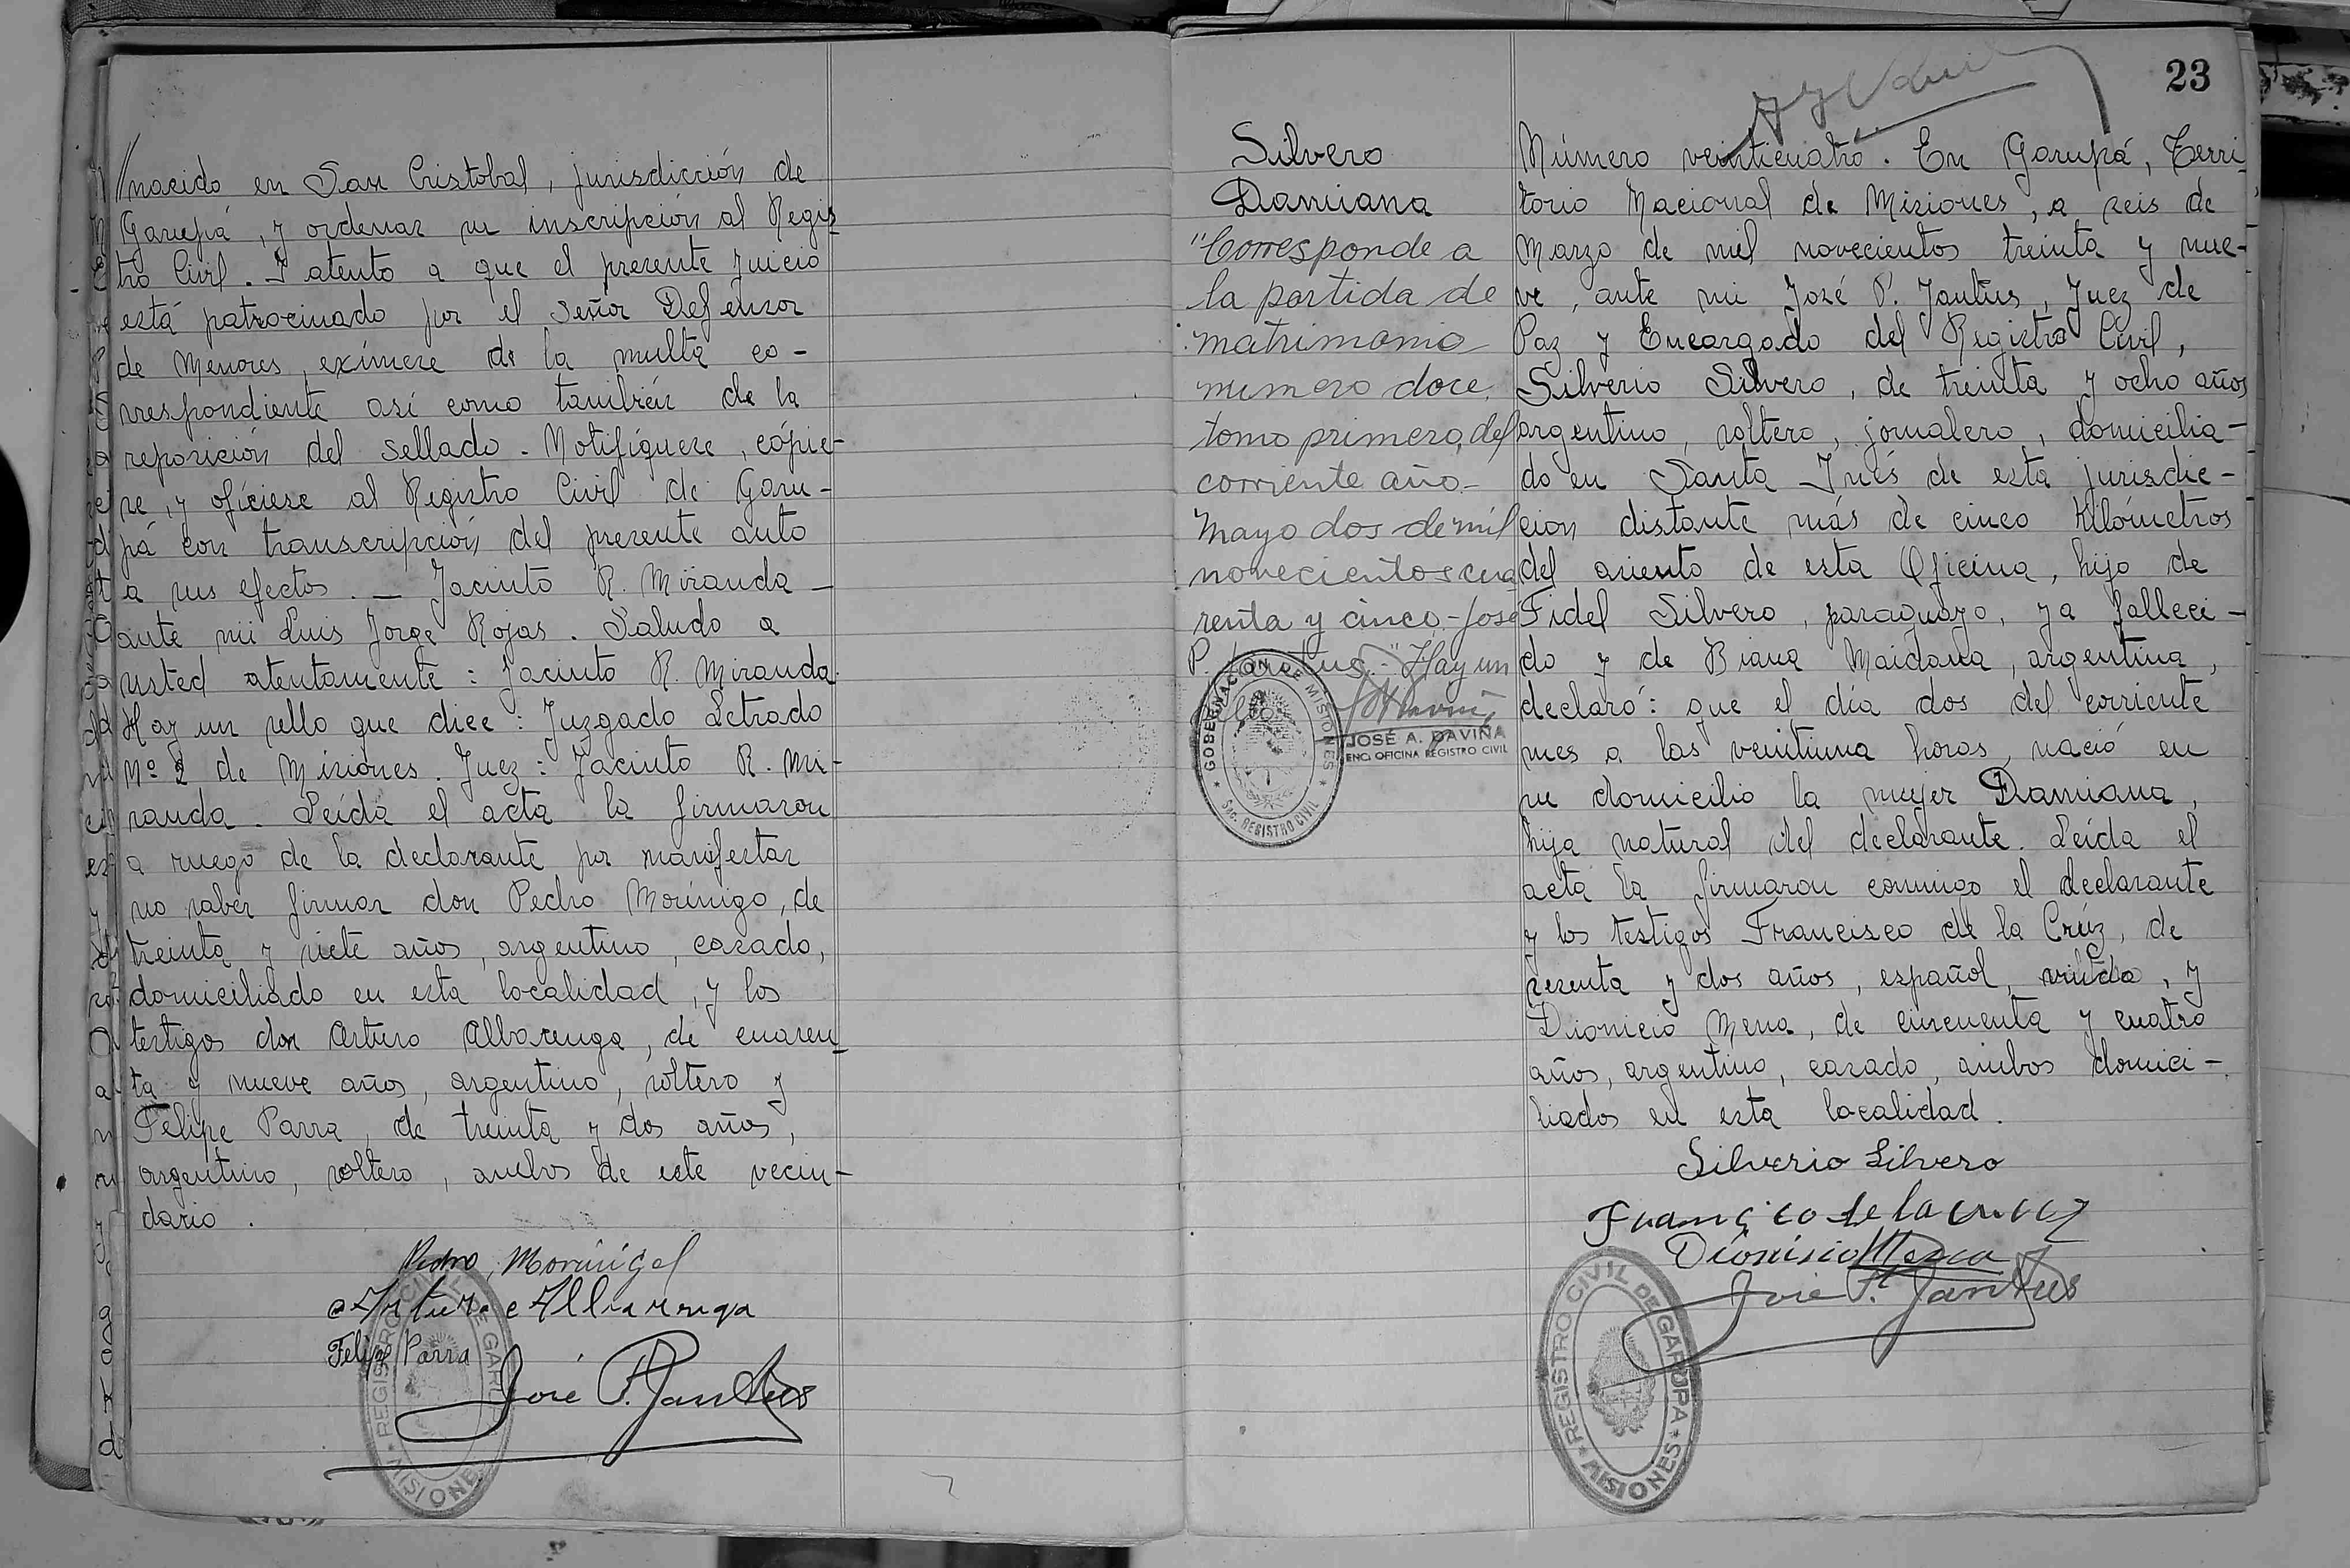 nacido en San Cristobal, jurisdicción de
Garupá, y ordenar su inscripción al Regis
tro Civil. Y atento a que el presente juicio
está patrocinado por el señor Defensor
de Menores, exímese de la multa co-
rrespondiente así como también de la
reposición del sellado. Notifíquese, cópie-
se, y ofíciese al Registro Civil de Garu-
pá con transcripción del presente auto
a sus efectos. — Jacinto R. Miranda —
ante mi Luis Jorge Rojas. Saludo a
usted atentamente: Jacinto R. Miranda.
Hay un sello que dice: Juzgado Letrado
Nº 2 de Misiones. Juez: Jacinto R. Mi-
randa. Leída el acta la firmaron
a ruego de la declarante por manifestar
no saber firmar don Pedro Morínigo, de
treinta y siete años, argentino, casado,
domiciliado en esta localidad, y los
testigos don Arturo Albarenga, de cuaren
ta y nueve años, argentino, soltero y
Felipe Parra, de treinta y dos años,
argentino, soltero, ambos de este vecin-
dario.
Pedro Morinigol
Felipe Parra
José P. Jantus
REGISTRO CIVIL DE GARUPA
MISIONES
23
Silvero
Damiana
"Corresponde a
la partida de
matrimonio
numero doce,
tomo primero, del
corriente año.-
Mayo dos de mil
novecientos cua
renta y cinco.- José
P. Jantus.- "Hay un
sello.
GOBERNACION DE MISIONES
SEC. REGISTRO CIVIL
JOSÉ A. DAVIÑA
ENC. OFICINA REGISTRO CIVIL
Número veinticuatro. En Garupá, Terri
torio Nacional de Misiones, a seis de
Marzo de mil novecientos treinta y nue-
ve, ante mi José P. Jantus, Juez de
Paz y Encargado del Registro Civil,
Silverio Silvero, de treinta y ocho años
argentino, soltero, jornalero, domicilia-
do en Santa Inés de esta jurisdic-
cion distante más de cinco Kilómetros
del asiento de esta Oficina, hijo de
Fidel Silvero, paraguayo, ya falleci-
do y de Biana Maidana, argentina,
declaró: que el día dos del corriente
mes a las veintiuna horas, nació en
su domicilio la mujer Damiana,
hija natural del declarante. Leída el
acta la firmaron conmigo el declarante
y los testigos Francisco de la Crúz, de
sesenta y dos años, español, viudo, y
Dionicio Mena, de cincuenta y cuatro
años, argentino, casado, ambos domici-
liados en esta localidad.
Silverio Silvero
Francico de la cruz
Dionisio Mena
José P. Jantus
REGISTRO CIVIL DE GARUPA
MISIONES